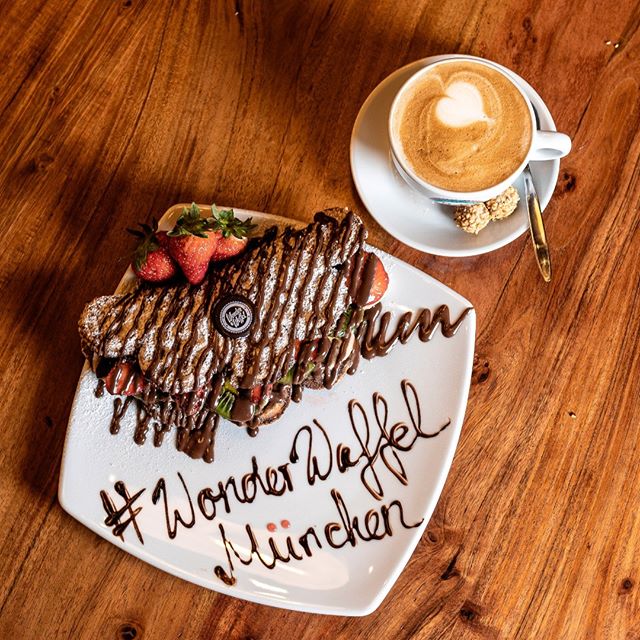 #WonderWaffel
München